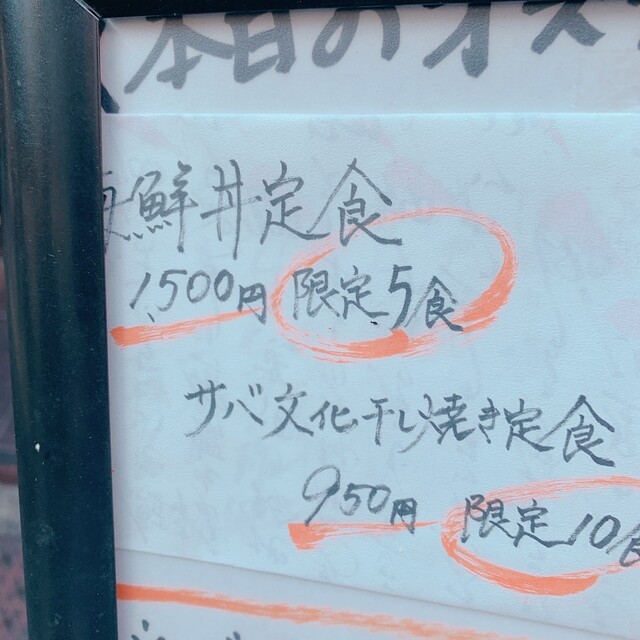 本日のオス
海鮮丼定食
1,500円 限定5食
サバ文化干し焼き定食
950円 限定10食